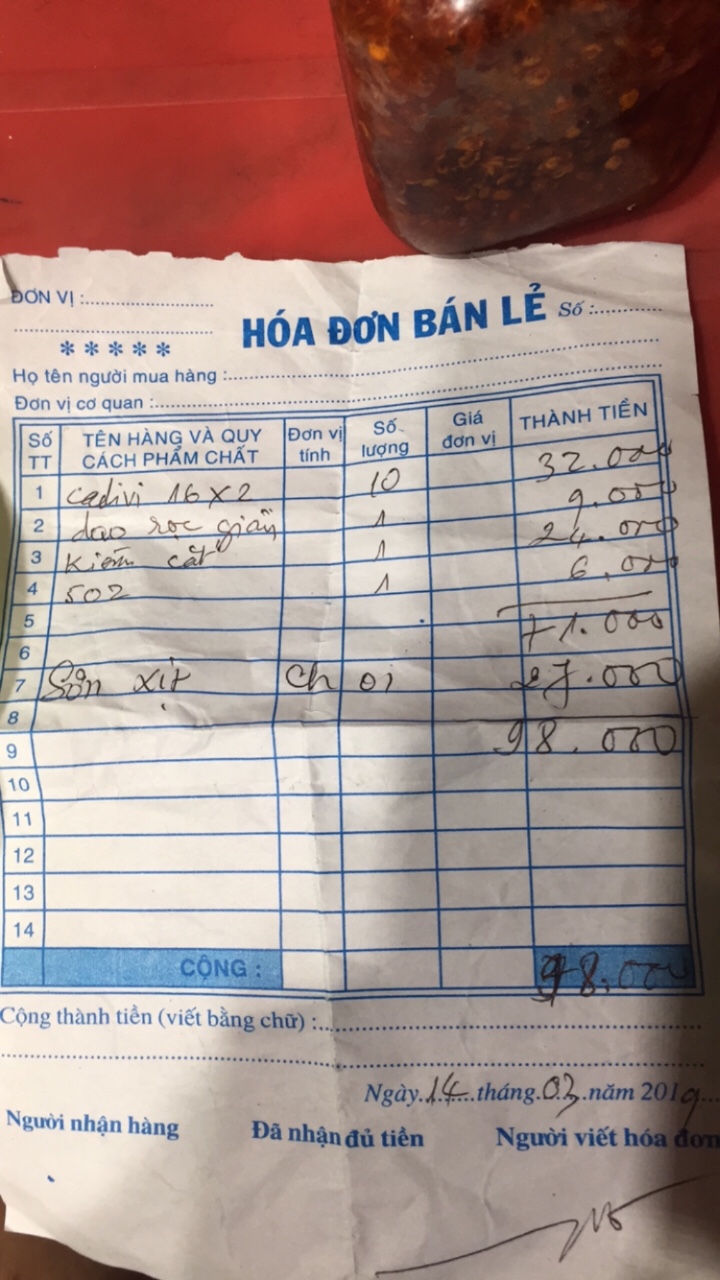 ĐƠN VỊ :
HÓA ĐƠN BÁN LẺ Số :
*****
Họ tên người mua hàng :
Đơn vị cơ quan :
Số TT TÊN HÀNG VÀ QUY CÁCH PHẨM CHẤT Đơn vị tính Số lượng Giá đơn vị THÀNH TIỀN
1 cadivi 16 x 2 10 32.000
2 dao rọc giấy 1 9.000
3 Kiềm cắt 1 24.000
4 502 1 6.000
5 71.000
6
7 Sơn xịt Choi 27.000
8
9 98.000
10
11
12
13
14
CỘNG : 98.000
Cộng thành tiền (viết bằng chữ) :
Ngày 14 tháng 03 năm 2019
Người nhận hàng Đã nhận đủ tiền Người viết hóa đơn